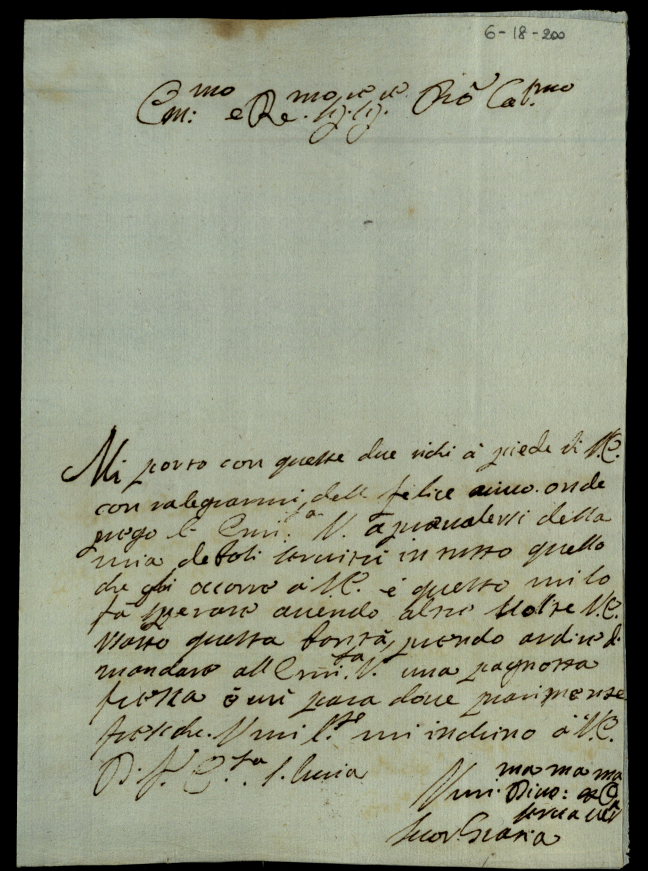 6-18-200
Em:mo e Re.mo Sig. Sig. Prõ Col.mo
Mi porto con queste due righi à piede di V.E.
con ralegrarmi dell felice arivo. onde
prego l' Emi:ta V. à prevalersi della
mia deboli servitù in tutto quello
che gli occorre à V.E. è questo mi lo
fa sperare avendo altre volte V.E.
usato questa bontà, prendo ardire di
mandare all Emi.ta V. una pagnotta
fresca è un para dove parimente
fresche. Umil.te mi inchino à V.E.
D. V. E.za S. Lucia
Umi.ma Divo:ma ma
serva
Suor